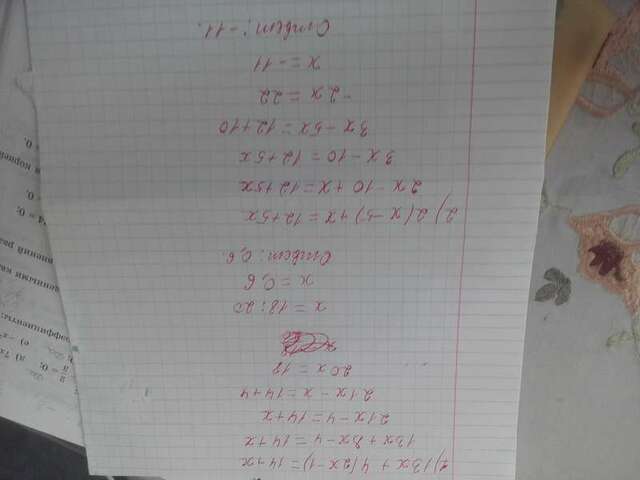 1) 13x + 4(2x-1) = 14+x
13x + 8x - 4 = 14+x
21x - 4 = 14+x
21x - x = 14+4
20x = 18
x = 18:20
x = 0,6
Ответ: 0,6.
2) 2(x-5)+x = 12+5x
2x - 10 + x = 12+5x
3x - 10 = 12+5x
3x - 5x = 12+10
-2x = 22
x = -11
Ответ: -11.